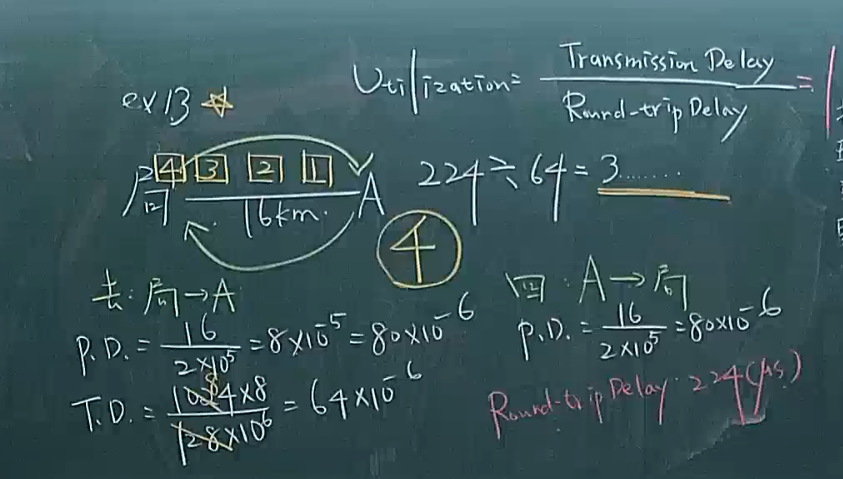 ex13 ☆
Utilization = Transmission Delay / Round-trip Delay =
局 4 3 2 1 A
16km.
224 ÷ 64 = 3.......
4
去: 局 → A
P.D. = 16 / 2×10^5 = 8×10^-5 = 80×10^-6
T.D. = 1024×8 / 128×10^6 = 64×10^-6
回: A → 局
P.D. = 16 / 2×10^5 = 80×10^-6
Round-trip Delay: 224(μs)